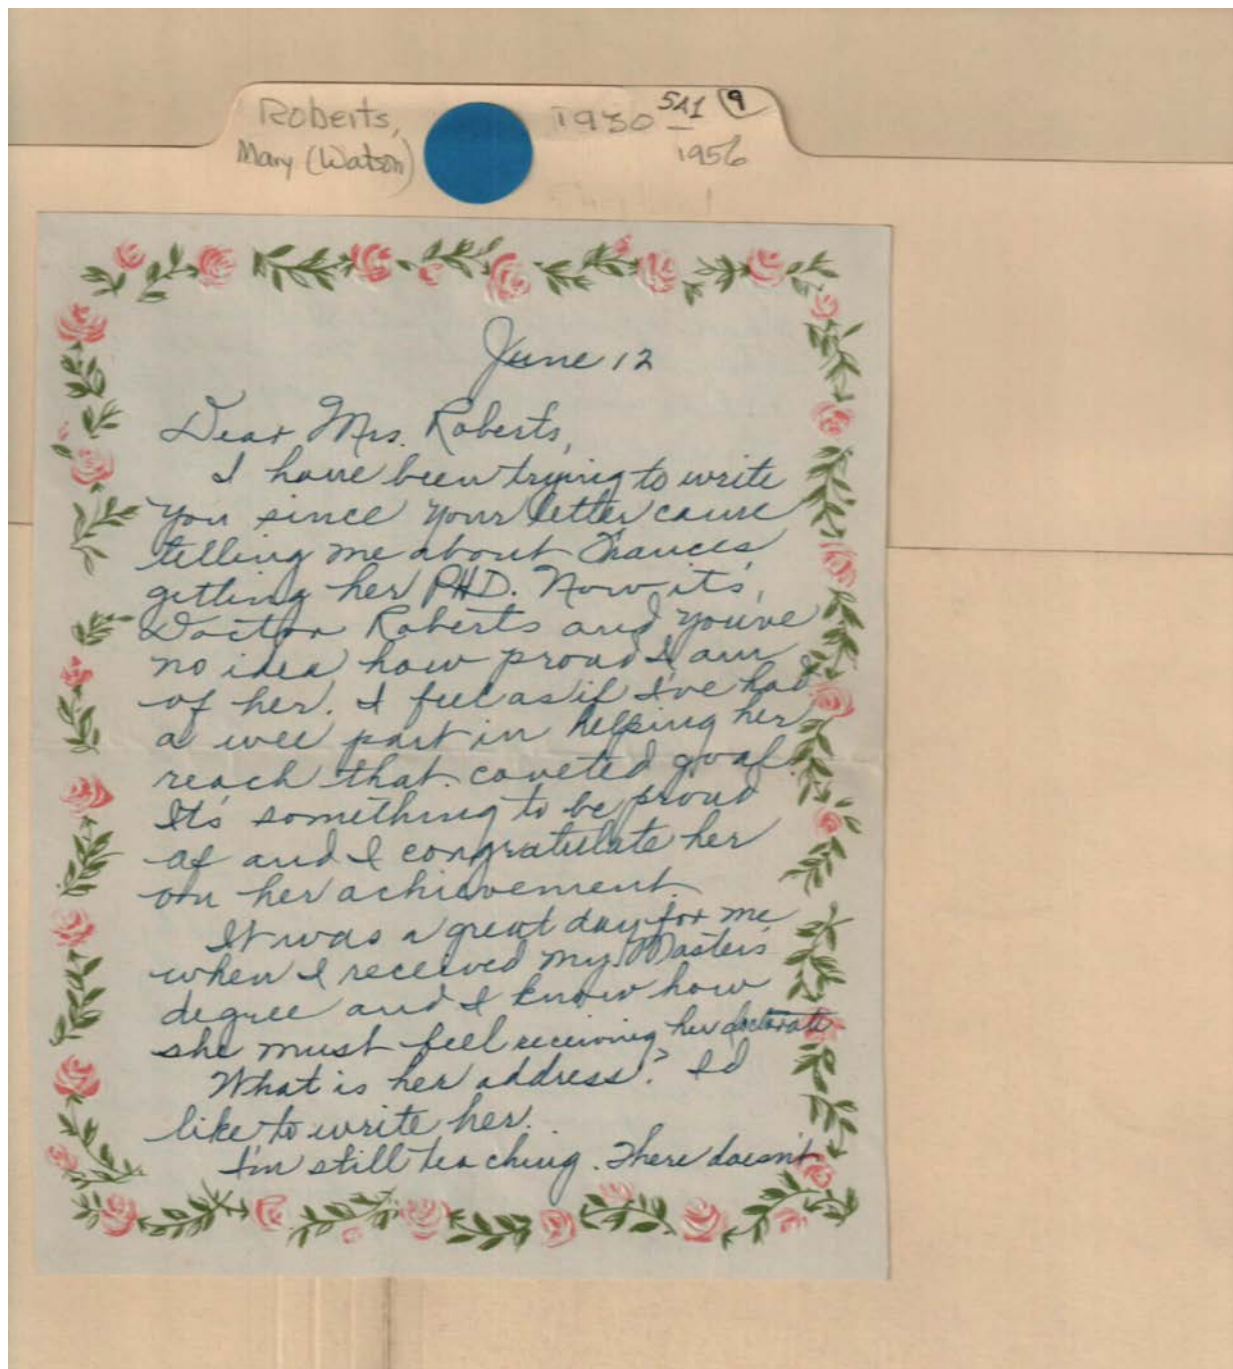 Roberts,
Mary (Watson)
1930 –
1956
5A1 9
June 12
Dear Mrs. Roberts,
I have been trying to write
you since your letter came
telling me about Frances'
getting her PHD. Now it's,
Doctor Roberts and you've
no idea how proud I am
of her. I feel as if I've had
a wee part in helping her
reach that coveted goal.
It's something to be proud
of and I congratulate her
on her achievement.
It was a great day for me
when I received my Master's
degree and I know how
she must feel receiving her doctorate
What is her address? I'd
like to write her.
I'm still teaching. There doesn't